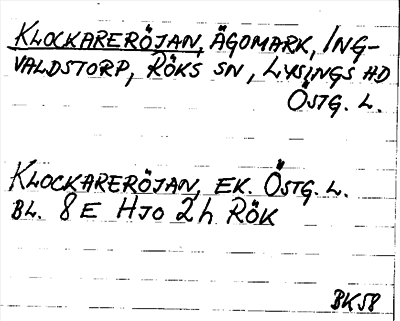 KLOCKARERÖJAN, ÄGOMARK, ING-
VALDSTORP, RÖKS SN, LYSINGS HD
ÖSTG. L.
KLOCKARERÖJAN, EK. ÖSTG. L.
BL. 8E HJO 2h RÖK
BK58